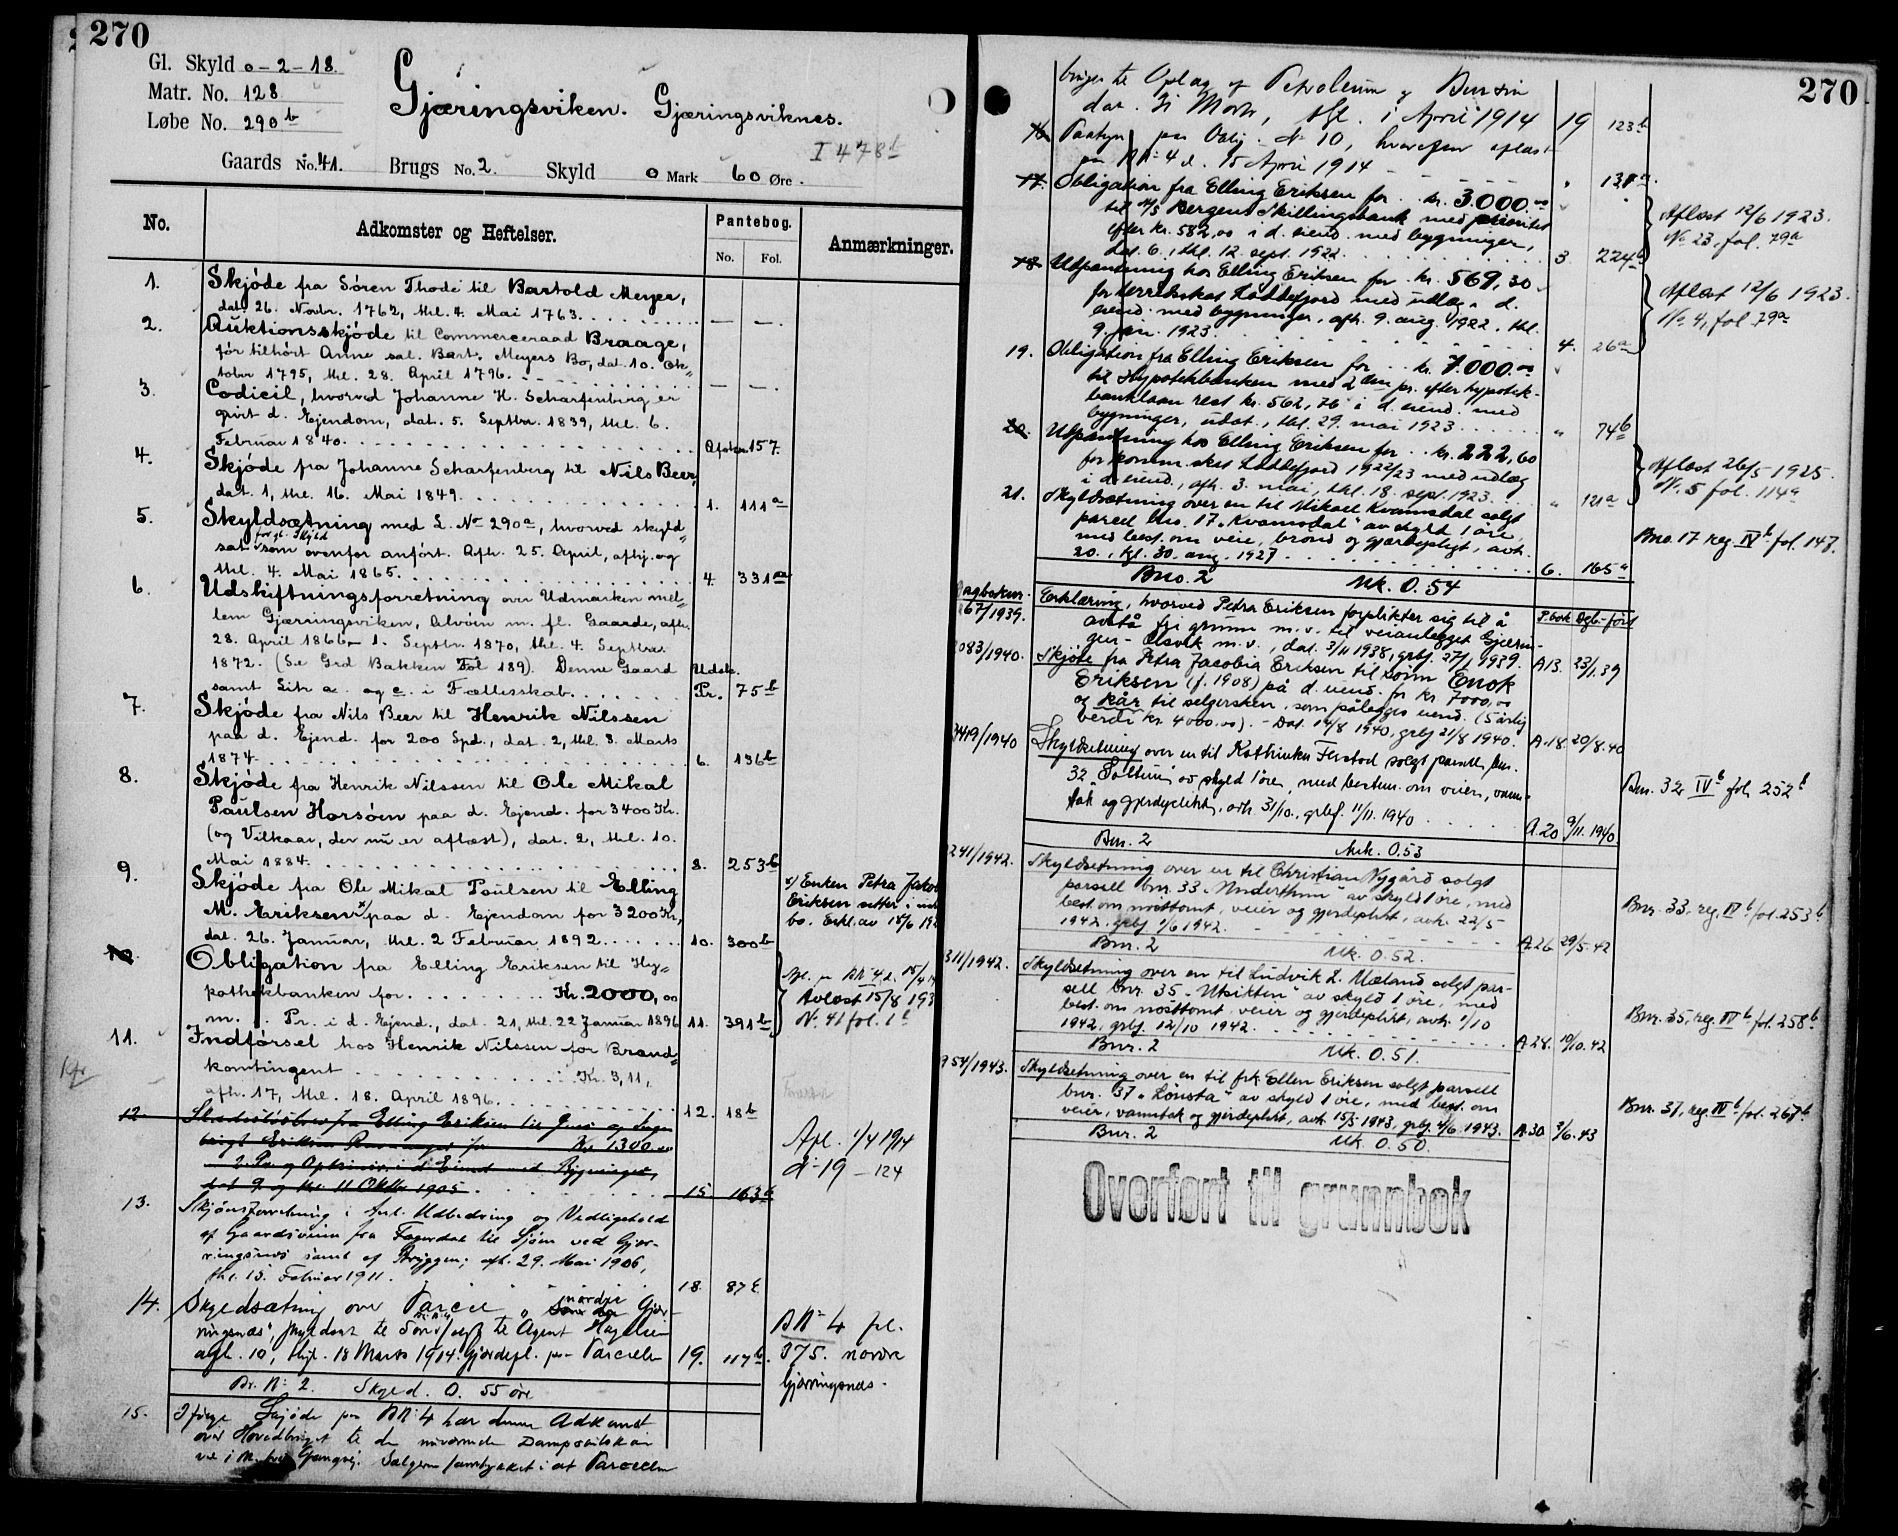 270
Gl. Skyld 0-2-18.
Matr. No. 128
Løbe No. 290 b
Gjæringsviken. Gjæringsviknes.
I 478 b
Gaards No. 41. Brugs No. 2. Skyld 0 Mark 60 Øre.
No. Adkomster og Heftelser. Pantebog. No. Fol. Anmærkninger.
1. Skjöde fra Sören Thode til Bartold Meyer,
dat. 26. Novbr. 1762, thl. 4. Mai 1763. — —.
2. Auktionsskjöde til Commerceraad Braage,
för tilhört Anne sal. Bart. Meyers Bo, dat. 10. Ok„
tober 1795, thl. 28. April 1796. — —.
3. Codicil, hvorved Johanne H. Scharfenberg er
givet d. Ejendom, dat. 5. Septbr. 1839, thl. 6.
Februar 1840. 157.
4. Skjöde fra Johanne Scharfenberg til Nils Beer,
dat. 1, thl. 16. Mai 1849. 1. 111 a
5. Skyldsætning med L. No 290 a, hvorved skyld„
for gl. Skyld
sat som ovenfor anfört. Afh. 25. April, afhj. og
thl. 4. Mai 1865. 4. 331 a
6. Udskiftningsforretning over Udmarken mel„
lem Gjærringsviken, Alvöen m. fl. Gaarde, afh.
28. April 1866 - 1. Septbr. 1870, thl. 4. Septbr.
1872. (Se Grd Bakken Fol 189). Denne Gaard Udsk.
samt Litr a. og c. i Fællesskab. Pr. 75 b
7. Skjöde fra Nils Beer til Henrik Nilssen
paa d. Ejend. for 200 Spd., dat. 2, thl. 3. Marts
1874 6. 136 b
8. Skjöde fra Henrik Nilssen til Ole Mikal
Paulsen Horsöen paa d. Ejend. for 3400 Kr.
(og Vilkaar, der nu er aflæst), dat. 2, thl. 10.
Mai 1884. 8. 253 b
9. Skjöde fra Ole Mikal Poulsen til Elling
M. Eriksen x) paa d. Ejendom for 3200 Kr,
dat. 26. Januar, thl. 2 Februar 1892 10. 300 b
x) Enken Petra Jakob
Eriksen sitter i
bo. Erkl. av 18/6 192
10. Obligation fra Elling Eriksen til Hy„
pothekbanken for Kr. 2000,00
m. Pr. i d. Ejend., dat. 21, thl. 22 Januar 1896 11. 391 b
Avlæst 15/8 193
N. 41 fol. 1
11. Indförsel hos Henrik Nilssen for Brand„
kontingent Kr. 3,11,
afh. 17, thl. 18. April 1896. 12. 18 b
12. Skadesløsbrev fra Elling Eriksen til
Eriksen Kr. 1300
2. Pr. og Opt. i d. Eiend. med Bygninger,
dat 9 og thl. 11 Oktbr 1905. 15 163
Afl. 1/4 1914
N 19 — 124
13. Skjönsforretning i Anl. Udbedring og Vedligehold
af Gaardsveien fra Fagerdal til Sjöen ved Gjær-
ringsnes samt af Bryggen; afh. 29. Mai 1906,
thl. 15. Februar 1911. 18. 87
14. Skyldsætning over Parcel „nordre Gjær-
ringsnæs", til Agent
afh. 10, thgl. 18 Marts 1914. Gjerdepl. paa Parcellen 19. 117 b.
B N 4 fol.
375. nordre
Gjæringsnæs.
Br. N: 2. Skyld. 0. 55 öre
15. I følge Skjöde paa B N: 4 har denne Adkomst
over Hovedbruget til
Sælgeren samtykket i at Parcellen
270
bruges til Oplag af Petroleum og Bensin
dat. 21 Marts, thl. 1 April 1914 19 123 b
16. N 10,
paa B N: 4 d. 15 April 1914 „ 131 a.
17. Obligation fra Elling Eriksen for kr. 3000.00
til A/S Bergens Skillingsbank med prioritet
efter kr. 582,00 i d. eiend. med bygninger,
dat. 6., thl. 12. sept. 1922. 3. 224 b
Aflæst 12/6 1923.
No. 23, fol. 79 a
18. Utpantning hos Elling Eriksen for kr. 569,30
for herredsskat Laksevaag med utlæg i d.
eiend. med bygninger, afh. 9. aug. 1922, thl.
9. jan. 1923 4. 26 a
Aflæst 12/6 1923.
No. 4, fol 79 a
19. Obligation fra Elling Eriksen for kr. 7.000.00
til Hypotekbanken med 2den pr. efter hypotek-
banklaan rest kr. 562,76 i d. eiend. med
bygninger, udat., thl. 29. mai 1923 „ 74 b
20. Utpantning hos Elling Eriksen for kr. 222,60
for komm. skat 1922/23 med utlæg
i d. eiend., afh. 3. mai, thl. 18. sept. 1923. „ 121 a
Aflæst 26/5 1925.
N. 5 fol. 114 a
21. Skyldsætning over en til Mikael Kvamsdal solgt
parcel bno. 17 „Kvamsdal" av skyld 1 öre,
med best. om veie, brönd og gjærdepligt, avh.
20., tgl. 30. aug. 1927 6. 165 a
Bno. 17 reg. IV b fol. 147.
Bno. 2 Mk. 0.54
Dagboknr. P.bok Dgb.-ført
67/1939. Erklæring, hvorved Petra Eriksen forplikter sig til å
avstå fri grunn m.v. til veianlegget Gjærin-
gen - Olsvik m.v., dat. 3/11 1938, grbf. 27/1 1939. A 13. 23/1.39
083/1940. Skjøte fra Petra Jacobia Eriksen til sönn Enok
Eriksen (f. 1908) på d. eiend. for kr. 7000,00
og kår til selgersken, som pålegges eiend. (5 årlig
verdi kr. 4000,00). - Dat. 14/8 1940, grbf 21/8 1940. A. 18. 20/8.40
4419/1940 Skyldsetning over en til Kathinka Ferstad solgt parsell bnr.
32 Soltun av skyld 1 öre, med bestem. om veier, vann-
tak og gjerdeplikt, avh. 31/10., grbf. 11/11. 1940 A. 20 9/11. 1940.
Bnr. 32 IV b fol. 252 b
Bnr. 2 Mrk. 0.53
241/1942. Skyldsetning over en til Christian Nygård solgt
parsell bnr. 33 „Undertun" av skyld 1 öre, med
best. om nösttomt, veier og gjerdeplikt, avh. 22/5
1942. grbf 1/6 1942. A. 26 29/5. 42
Bnr. 33, reg. IV b fol. 253 b
Bnr. 2 Mk. 0.52.
311/1942. Skyldsetning over en til Ludvik L. Mæland solgt par-
sell bnr. 35 „Utsikten" av skyld 1 öre, med
best. om nösttomt, veier og gjerdeplikt, avh. 1/10
1942, grbf. 12/10 1942. A. 28. 10/10. 42
Bnr. 35, reg. IV b fol. 258 b
Bnr. 2 Mk. 0.51.
954/1943. Skyldsetning over en til frk. Ellen Eriksen solgt parsell
bnr. 37 „Lönsta" av skyld 1 öre, med best. om
veier, vanntak og gjerdeplikt, avh. 15/5 1943, grbf. 4/6 1943. A. 30 3/6. 43
Bnr. 37, reg. IV b fol. 267 b
Bnr. 2 Mk. 0.50.
Overført til grunnbok